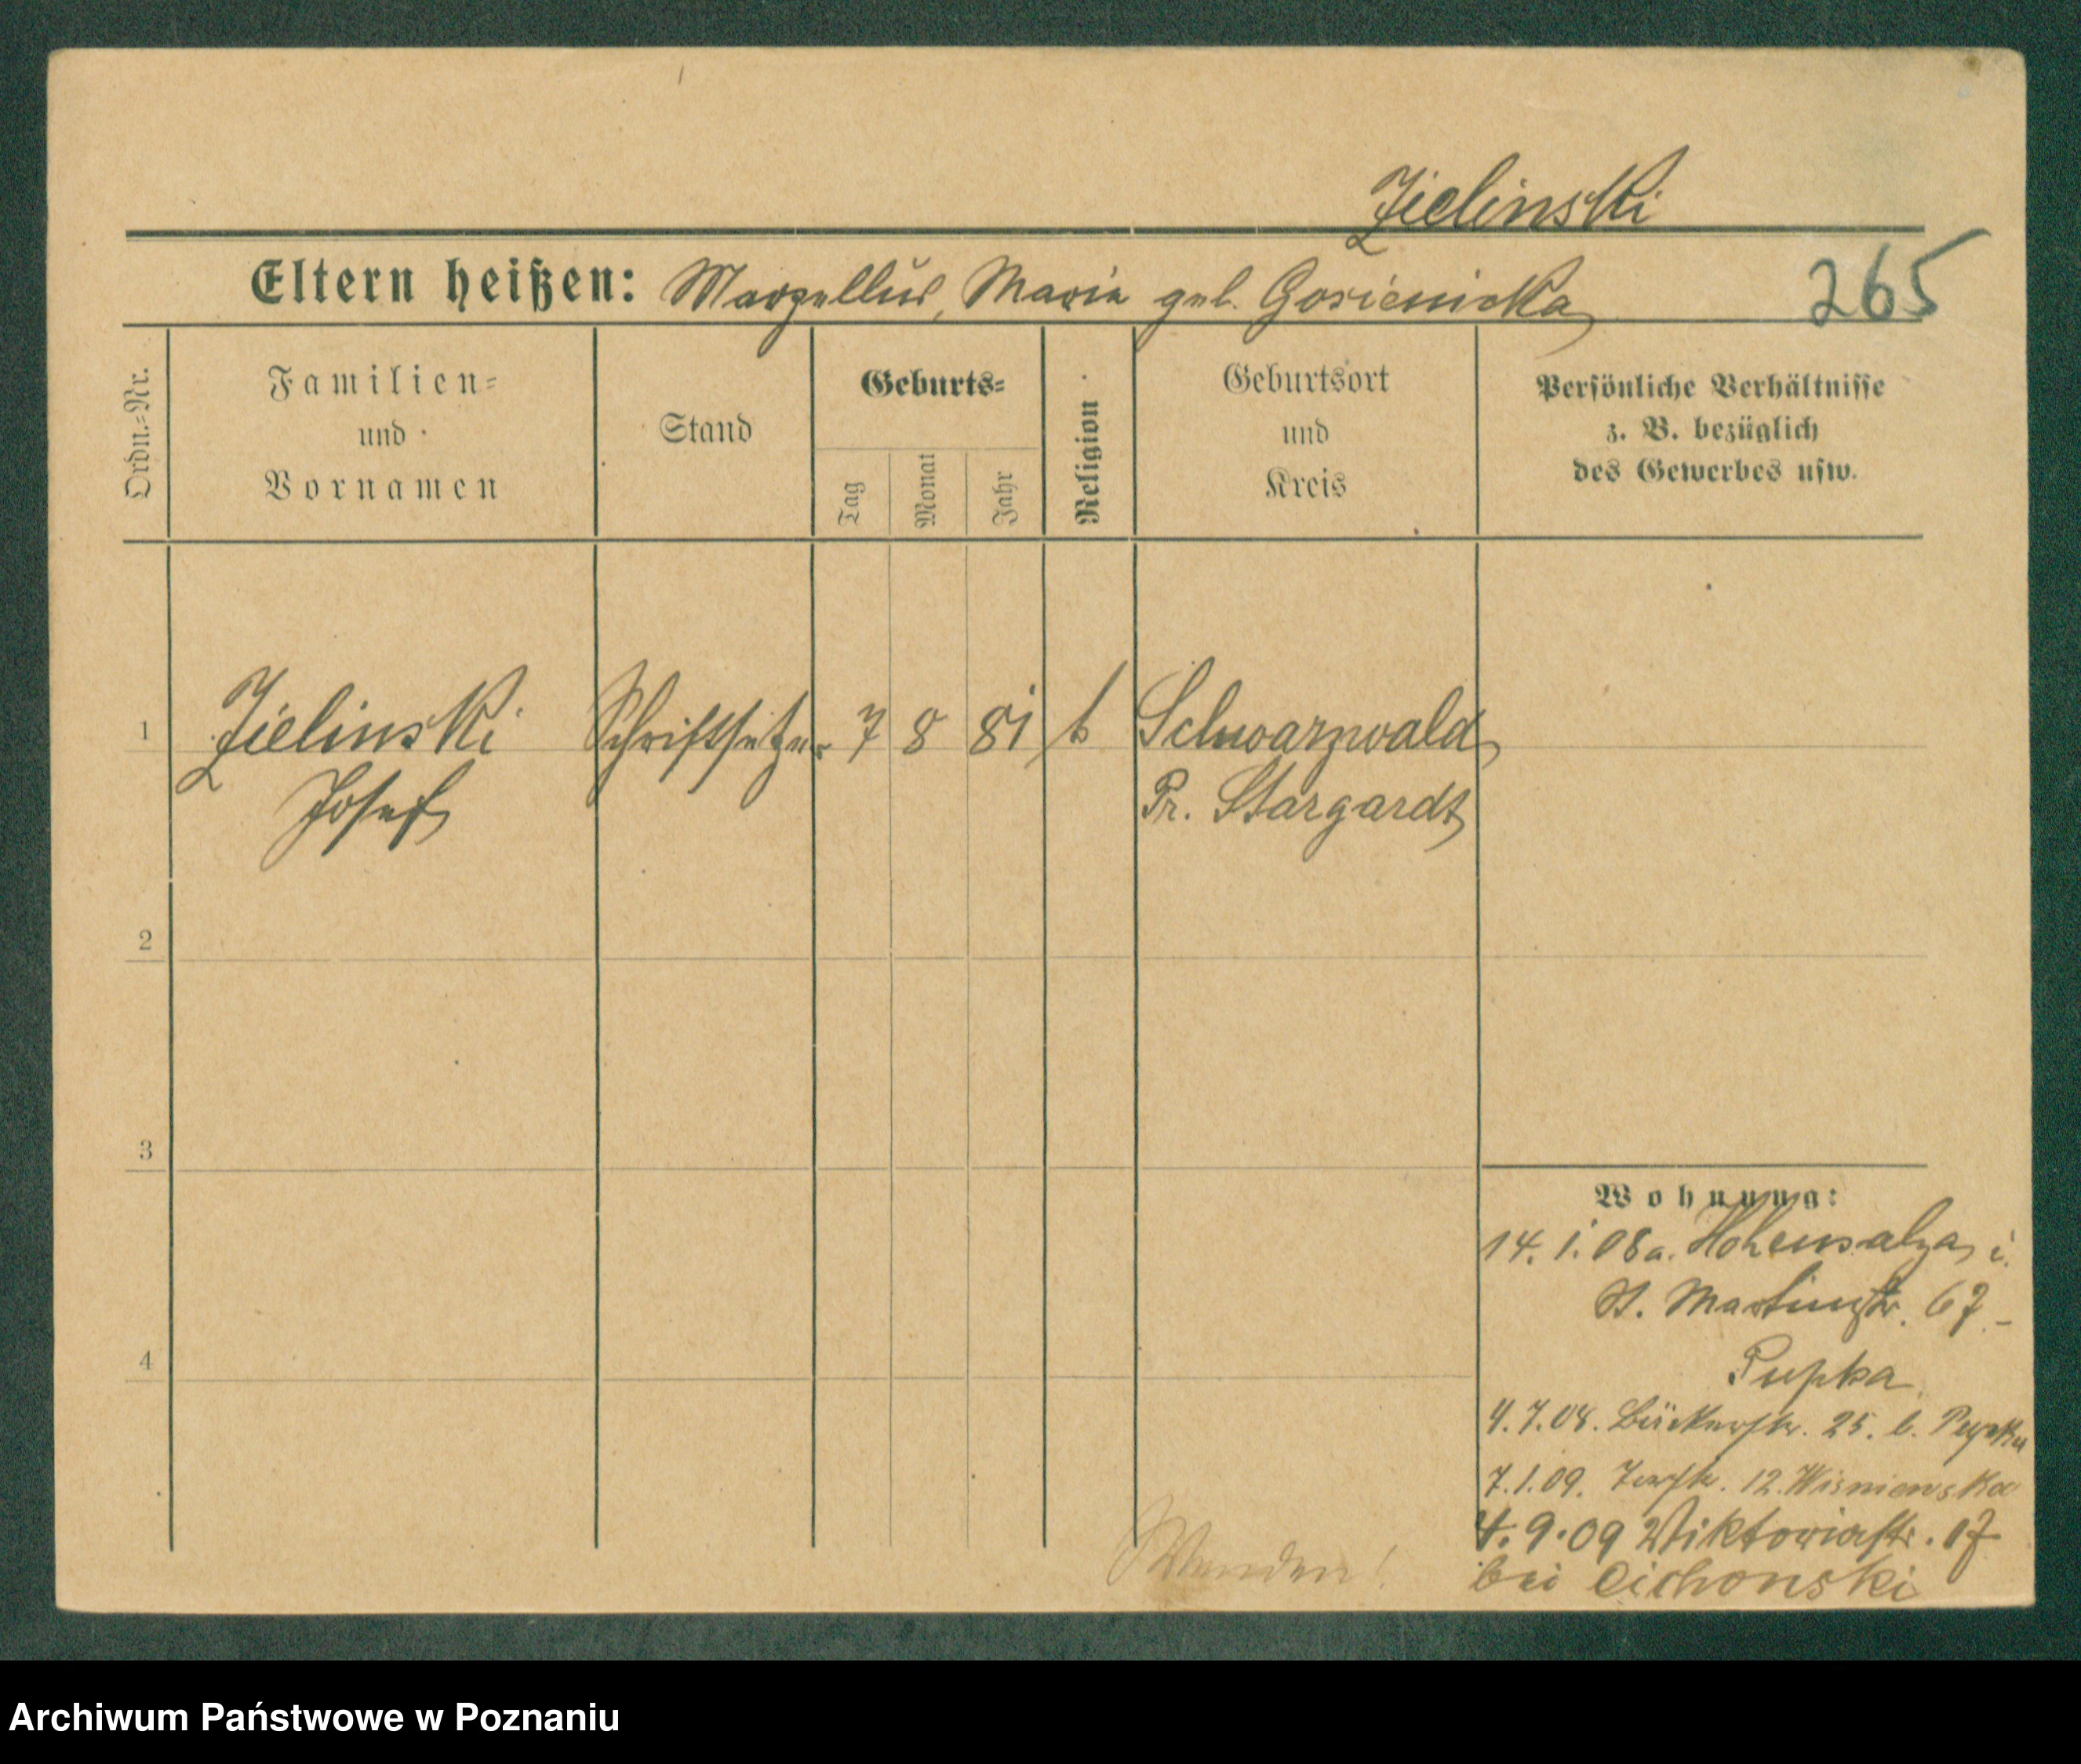 Zielinski
Eltern heißen: Marzellus, Maria geb. Gosienicka
265
Ordn.-Nr.
Familien-
und
Vornamen
Stand
Geburts-
Tag
Monat
Jahr
Religion
Geburtsort
und
Kreis
Persönliche Verhältnisse
z. B. bezüglich
des Gewerbes usw.
1
Zielinski Schriftsetzer 7 8 81 k Schwarzwald
Josef
Pr. Stargardt
2
3
4
Wohnung:
14. 1. 08 a. Hohensalza i.
St. Martinstr. 67 -
Pupka
4. 7. 08. Bäckerstr. 25. b.
7. 1. 09. 12. Wisniewska
4. 9. 09 Viktoriastr. 17
bei Cichonski
Wenden!
Archiwum Państwowe w Poznaniu